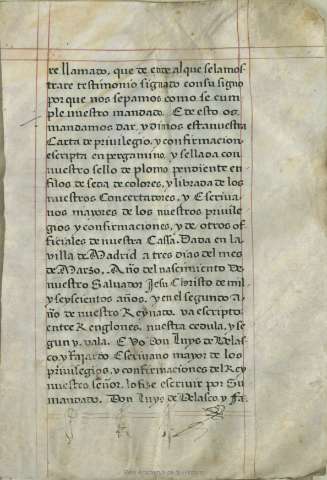 re llamado, que de ende al que se la mos
trare testimonio signado con su signo
porque nos sepamos como se cum
ple nuestro mandado. E de esto os
mandamos dar, y dimos esta nuestra
Carta de privilegio, y confirmacion
escripta en pergamino, y sellada con
nuestro sello de plomo pendiente en
filos de seda de colores, y librada de los
nuestros Concertadores, y Escriva
nos mayores de los nuestros privile
gios y confirmaciones, y de otros of
ficiales de nuestra Cassa. Dada en la
villa de Madrid a tres dias del mes
de Marzo. Año del nascimiento de
nuestro Salvador Jesu Christo de mil
y seyscientos años. Y en el segundo a
ño de nuestro Reynado. va escripto
entre Renglones. nuestra cedula. y se
gun y. vala. E Yo Don Luys de Velas
co y Fajardo Escrivano mayor de los
privilegios, y confirmaciones del Rey
nuestro señor. lo fize escrivir por Su
mandado. Don Luys de Velasco y Fa.
Real Academia de la Historia